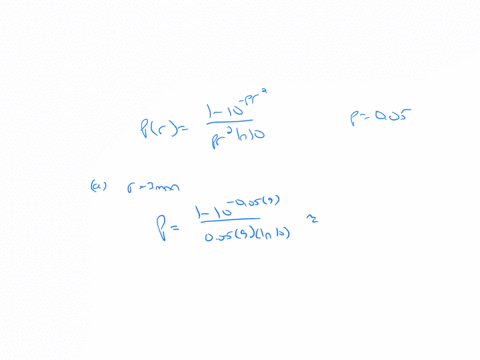 P(r) = \frac{1-10^{-pr^2}}{pr^2 ln10} p=0.05
(a) r=3mm
P = \frac{1-10^{-0.05(9)}}{0.05(9)(ln10)} ≈